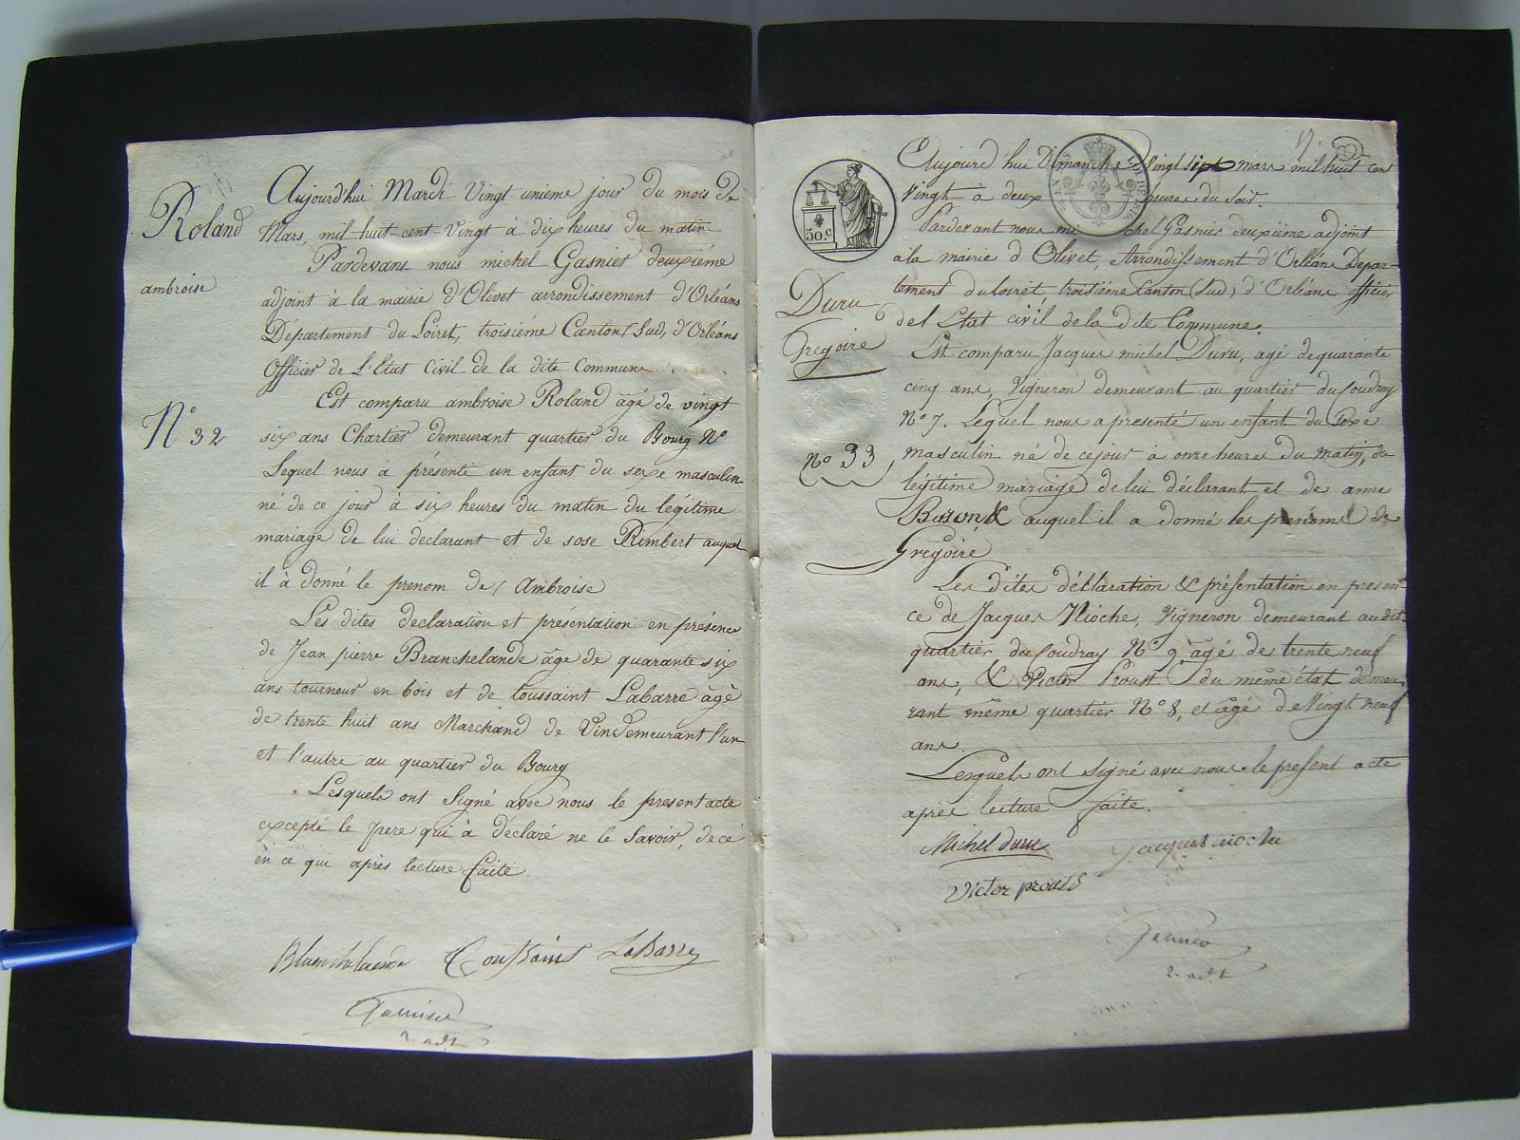 Roland
ambroise
N° 32
Aujourd'hui Mardi Vingt unieme jour du mois de
Mars, mil huit cent Vingt à dix heures du matin
Pardevant nous michel Gasnier deuxième
adjoint à la mairie d'Olivet arrondissement d'Orléans
Département du Loiret, troisiéme Canton Sud, d'Orléans
Officier de L'Etat Civil de la dite Commune
Est comparu ambroise Roland âgé de vingt
six ans Chartier demeurant quartier du Bourg N°
Lequel nous a présenté un enfant du sexe masculin
né de ce jour à six heures du matin du légitime
mariage de lui declarant et de rose Rimbert auquel
il à donné le prenom de Ambroise
Les dites declaration et présentation en présence
de Jean pierre Branchelande âge de quarante six
ans tourneur en bois et de toussaint Labarre âgé
de trente huit ans Marchand de Vin demeurant l'un
et l'autre au quartier du Bourg
Lesquels ont Signé avec nous le present acte
excepté le pere qui à déclaré ne le Savoir, de ce
en ce qui après lecture faite
Blanchelande Toussaint LaBarre
Gasnier
2e adjt
50.c
Duru
Gregoire
N° 33
Aujourd hui Dimanche Vingt sept mars mil huit cent
Vingt à deux heures du Soir.
Pardevant nous michel Gasnier deuxième adjoint
à la mairie d Olivet, Arrondissement d'Orléans Depar-
tement du Loiret, troisiéme Canton (Sud) d'Orléans officier
de l Etat civil de la dite Commune.
Est comparu Jacques michel Duru, agé de quarante
cinq ans, Vigneron demeurant au quartier du Coudray
N° 7. Lequel nous a presenté un enfant du Sexe
masculin né de ce jour à onze heures du matin, du
légitime mariage de lui déclarant et de anne
auquel il a donné les prenoms de
Grégoire
Les dites déclaration & présentation en presen-
ce de Jacques Nioche, Vigneron demeurant au dit
quartier du Coudray N° 9 agé de trente neuf
ans, & Victor Proust du même état demeu
rant même quartier N° 8, et agé de Vingt neuf
ans.
Lesquels ont signé avec nous le present acte
après lecture faite.
Michel duru Jacques nioche
Victor proust
Gasnier
2e adjt